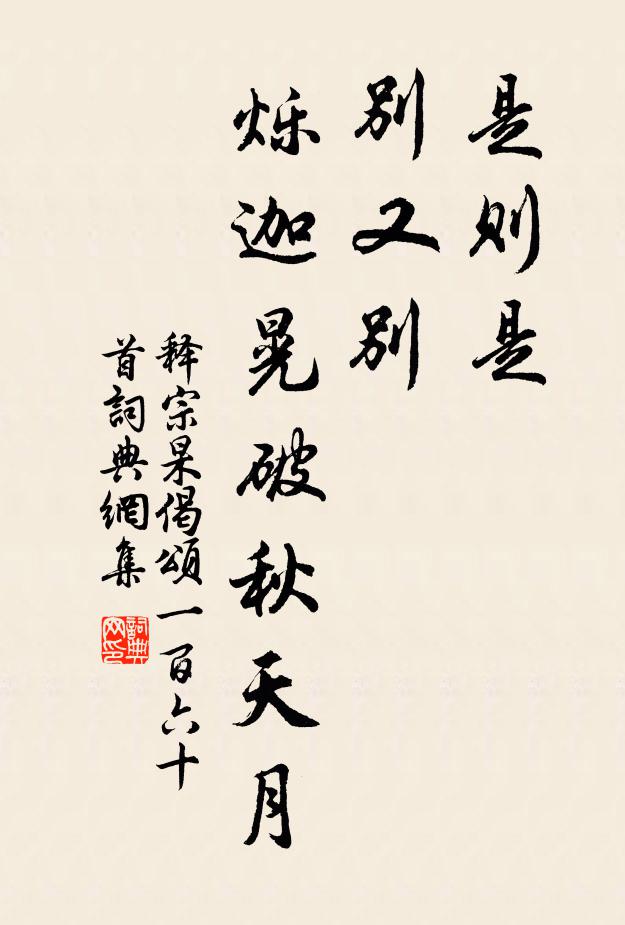 是则是
别又别
烁迦晃破秋天月
释宗杲偈頌一百六十
首詞典網集
詞典
网印